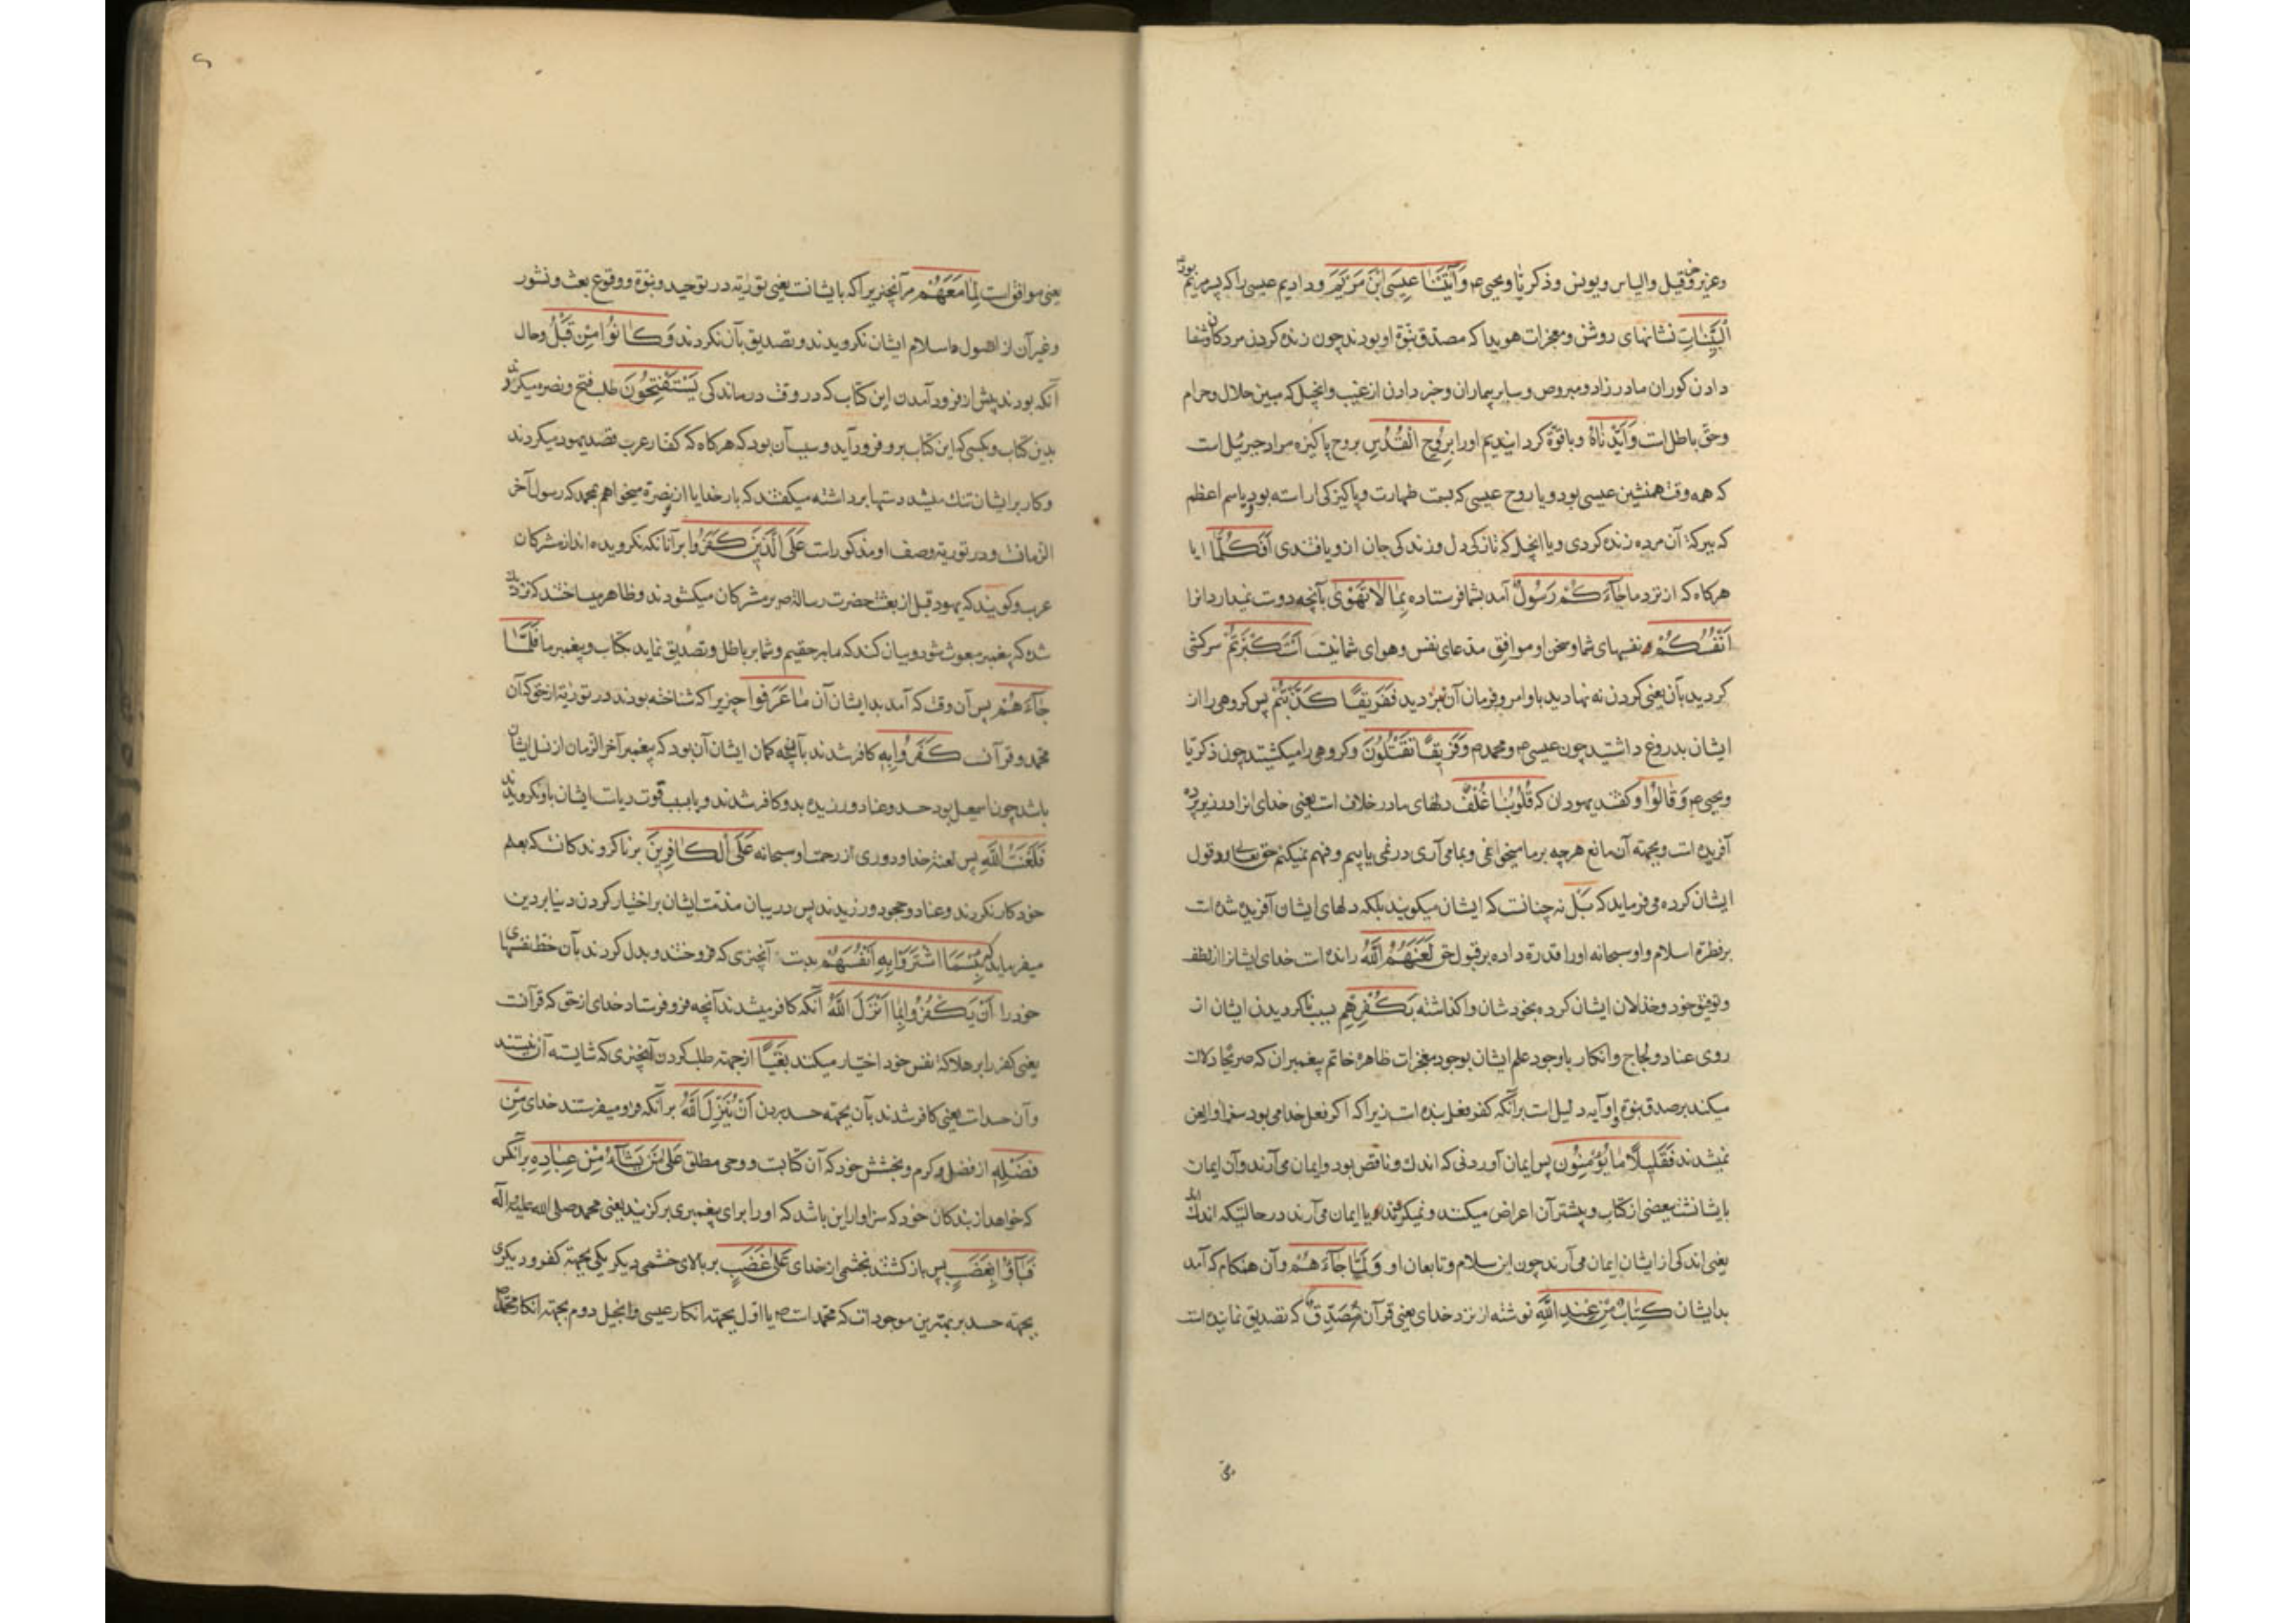 وعزیر و حزقیل والیاس ویونس وذکریا ویحیی ع وَآتَیْنَا عِیسَی ابْنَ مَرْیَمَ ودادیم عیسی را که پسر مریم بود
الْبَیِّنَاتِ نشانهای روشن ومعجزات هویدا که مصدق نبوة او بودند چون زنده کردن مردکان وشفا
دادن کوران مادرزاد ومبروص وسایر بیماران وخبر دادن از غیب وانجیل که مبین حلال وحرام
وحق باطل است وَاَیَّدْنَاهُ وباقوة کردانیدیم اورا بِرُوحِ الْقُدُسِ بروح پاکیزه مراد جبرئیل است
که همه وقت همنشین عیسی بود ویا روح عیسی که بسمت طهارت وپاکیزکی اراسته بود ویا سم اعظم
که ببرکة آن مرده زنده کردی ویا انجیل که تازکی دل وزندکی جان ازو یافتندی اَفَکُلَّمَا ایا
هرکاه که از نزد ما جَآءَکُمْ رَسُولٌ آمد بشما فرستاده بِمَا لَا تَهْوَی بآنچه دوست نمیدارد انرا
اَنْفُسُکُمْ نفسهای شما وسخن او موافق مدعای نفس وهوای شما نیست اسْتَکْبَرْتُمْ سرکشی
کردید بآن یعنی کردن نه نهادید باوامر وفرمان آن نبردید فَفَرِیقًا کَذَّبْتُمْ پس کروهی را از
ایشان بدروغ داشتید چون عیسی ع ومحمد م وَفَرِیقًا تَقْتُلُونَ وکروهی را میکشتید چون ذکریا
ویحیی ع وَقَالُوا وکفتند یهودان که قُلُوبُنَا غُلْفٌ دلهای ما در غلاف است یعنی خدای انرا در زیر پرده
آفریده است وبجهته آن مانع هرچه بر ما میخوانی وبما می آری در نمی یابیم وفهم نمیکنیم حق تعالی رد قول
ایشان کرده می فرماید که بَلْ نه چنانست که ایشان میکویند بلکه دلهای ایشان آفریده شده است
بر فطرة اسلام واو سبحانه اورا قدرة داده بر قبول حق لَعَنَهُمُ اللّٰهُ رانده است خدای ایشانرا از لطف
وتوفیق خود وخذلان ایشان کرده بخودشان واکذاشته بِکُفْرِهِمْ بسبب ناکرویدن ایشان از
روی عناد ولجاج وانکار باوجود علم ایشان بوجود معجزات ظاهره خاتم پیغمبران که صریحا دلالت
میکند بر صدق نبوة او وآیه دلیل است بر آنکه کفر فعل بنده است زیرا که اکر فعل خدا می بود سزاوار لعن
نمیشدند فَقَلِیلًا مَا یُؤْمِنُونَ پس ایمان آوردنی که اندك وناقص بود وایمان می آرند وآن ایمان
بایشانست ببعضی از کتاب وبیشتر آن اعراض میکنند ونمیکروند ویا ایمان می آرند در حالتیکه اندك اند
یعنی اندکی از ایشان ایمان می آرند چون ابن سلام وتابعان او وَلَمَّا جَآءَهُمْ وآن هنکام که آمد
بدایشان کِتَابٌ مِنْ عِنْدِ اللّٰهِ نوشته از نزد خدای یعنی قرآن مُصَدِّقٌ که تصدیق نماینده است
یعنی موافق است لِمَا مَعَهُمْ مر آنچیزیرا که بایشانست یعنی توریة در توحید ونبوة ووقوع بعث ونشور
وغیر آن از اصول اسلام ایشان نکرویدند وتصدیق بآن نکردند وَکَانُوا مِنْ قَبْلُ وحال
آنکه بودند پیش از فرود آمدن این کتاب که در وقت درماندکی یَسْتَفْتِحُونَ طلب فتح ونصرة میکردند
بدین کتاب وبکسی که این کتاب برو فرود آید وسبب آن بود که هرکاه که کفار عرب قصد یهود میکردند
وکار بر ایشان تنك میشد دستها برداشته میکفتند که بار خدایا از تو نصرة میخواهم بمحمد که رسول آخر
الزمانست ودر توریة وصف او مذکور است عَلَی الَّذِینَ کَفَرُوا بر آنانکه نکرویده اند از مشرکان
عرب وکویند که یهود قبل از بعثت حضرت رسالة ص بر مشرکان میکشودند وظاهر میساختند که نزدیك
شده که پیغمبر مبعوث شود وبیان کند که ما بر حقیم وشما بر باطل وتصدیق نماید کتاب وپیغمبر ما فَلَمَّا
جَآءَهُمْ پس آن وقت که آمد بدایشان آن مَا عَرَفُوا چیزیرا که شناخته بودند در توریة از حق که آن
محمد وقرآنست کَفَرُوا بِهِ کافر شدند بآنچه کمان ایشان آن بود که پیغمبر آخر الزمان از نسل ایشان
باشد چون اسمعیل بود حسد وعناد ورزیده بدو کافر شدند ویا بسبب فوت ریاست ایشان باو نکرویدند
فَلَعْنَةُ اللّٰهِ پس لعنة خدا ودوری از رحمت او سبحانه عَلَی الْکَافِرِینَ بر ناکروندکانست که بعلم
خود کار نکردند وعناد وجحود ورزیدند پس در بیان مذمت ایشان بر اختیار کردن دنیا بر دین
میفرماید که بِئْسَمَا اشْتَرَوْا بِهِ اَنْفُسَهُمْ بدست آنچیزی که فروختند وبدل کردند بآن حظ نفسهای
خود را اَنْ یَکْفُرُوا بِمَا اَنْزَلَ اللّٰهُ آنکه کافر میشدند آنچه فرو فرستاد خدای از حق که قرآنست
یعنی کفر را بر هلاکة نفس خود اختیار میکند بَغْیًا از جهته طلب کردن آنچیزی که شایسته آن نیستند
وآن حسد است یعنی کافر شدند بآن بجهته حسد بردن اَنْ یُنَزِّلَ اللّٰهُ بر آنکه فرو میفرستد خدای مِنْ
فَضْلِهِ از فضل وکرم وبخشش خود که آن کتابست ووحی مطلق عَلَی مَنْ یَشَآءُ مِنْ عِبَادِهِ بر آنکس
که خواهد از بندکان خود که سزاوار این باشد که اورا برای پیغمبری برکزیند یعنی محمد صلی الله علیه وآله
فَبَآؤُا بِغَضَبٍ پس باز کشتند بخشمی از خدای عَلَی غَضَبٍ بر بالای خشمی دیکر یکی بجهته کفر ودیکری
بجهته حسد بر بهترین موجودات که محمد است ص یا اول بجهته انکار عیسی وانجیل دوم بجهته انکار محمد ص